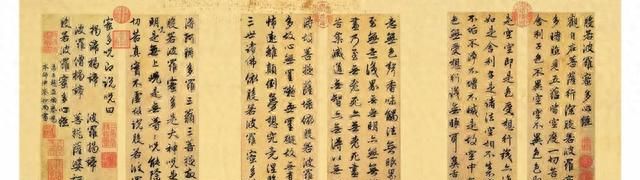 般若波羅蜜多心經
觀自在菩薩行深般若波羅
多時照見五蘊皆空度一切苦
舍利子色不異空空不異色色即
是空空即是色受想行識亦
如是舍利子是諸法空相不生不
不垢不淨不增不減是故空中
無色無受想行識無眼耳鼻舌
意無色聲香味觸法無眼界
意識界無無明亦無無明
盡乃至無老死亦無老死盡
苦集滅道無智亦無得以無
得故菩提薩埵依般若波羅
多故心無罣礙無罣礙故無有
怖遠離顛倒夢想究竟涅槃
三世諸佛依般若波羅蜜多
得阿耨多羅三藐三菩提故
般若波羅蜜多是大神咒是
明咒是無上咒是無等等咒能除
切苦真實不虛故說般若波羅
蜜多咒即說咒曰
揭諦揭諦 波羅揭諦
波羅僧揭諦 菩提薩婆訶
般若波羅蜜多心經
弟子趙孟頫奉為
本師中峯和尚書